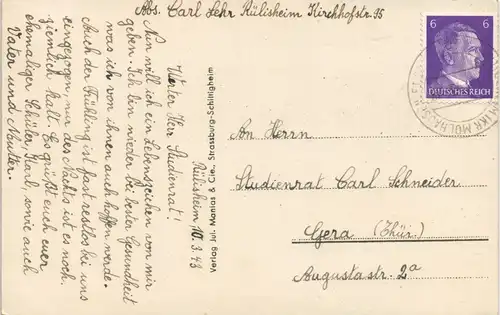 Abs. Carl Sehr Rülisheim Kirchhofstr. 95
Rülisheim 10.3.43
Werter Herr Studienrat!
Nun will ich ein Lebenszeichen von mir
geben. Ich bin wieder bei bester Gesundheit
was ich von ihnen auch hoffen werde.
Auch der Frühling ist fast restlos bei uns
eingezogen, nur des Nachts ist es noch
ziemlich kalt. Es grüßt euch euer
ehemaliger Schüler, Karl, sowie auch
Vater und Mutter.
Verlag Jul. Manias & Cie., Strassburg-Schiltigheim
6 6
DEUTSCHES REICH
An Herrn
Studienrat Carl Schneider
Gera (Thür.)
Augustastr. 2a